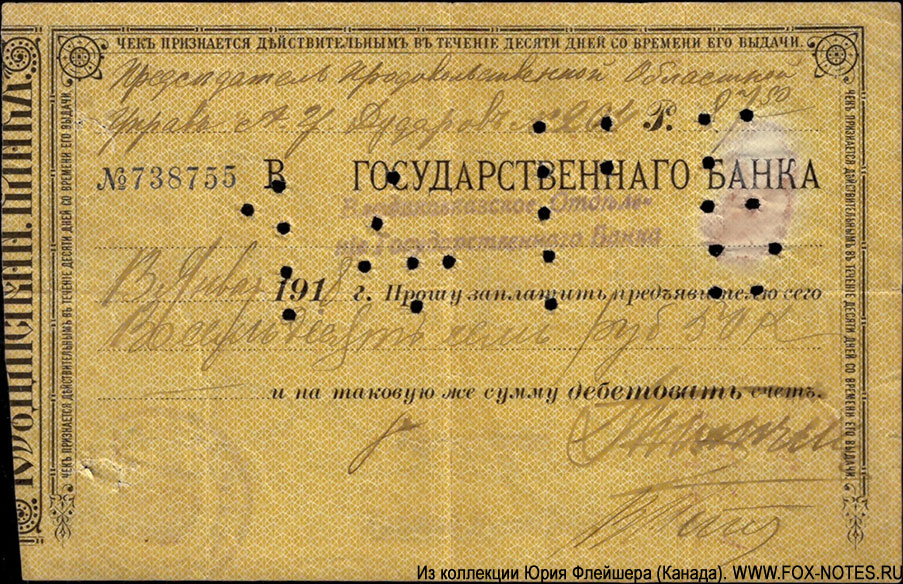 ЧЕКЪ ПРИЗНАЕТСЯ ДѢЙСТВИТЕЛЬНЫМЪ ВЪ ТЕЧЕНІЕ ДЕСЯТИ ДНЕЙ СО ВРЕМЕНИ ЕГО ВЫДАЧИ.
Председатель Продовольственной Областной
Управы А У Дударовъ Р. 87 50
№738755 В ГОСУДАРСТВЕННАГО БАНКА
Владикавказское Отдѣле-
ніе Государственнаго Банка
13 Января 1918 г. Прошу заплатить предъявителю сего
Восемьдесятъ семь руб 50 к
и на таковую же сумму дебетовать счетъ.
ЧЕКЪ ПРИЗНАЕТСЯ ДѢЙСТВИТЕЛЬНЫМЪ ВЪ ТЕЧЕНІЕ ДЕСЯТИ ДНЕЙ СО ВРЕМЕНИ ЕГО ВЫДАЧИ.
ЧЕКЪ ПРИЗНАЕТСЯ ДѢЙСТВИТЕЛЬНЫМЪ ВЪ ТЕЧЕНІЕ ДЕСЯТИ ДНЕЙ СО ВРЕМЕНИ ЕГО ВЫДАЧИ.
Из коллекции Юрия Флейшера (Канада). WWW.FOX-NOTES.RU